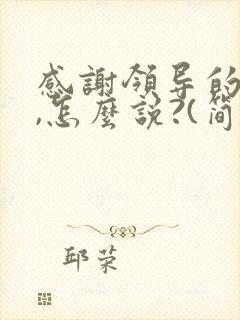 感謝領导的
,怎麼說?(简
邱荣